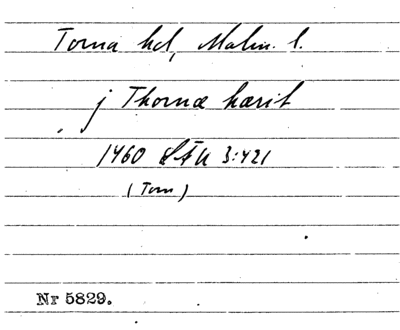 Torna hd, Malm. l.
j Thornæ hærit
1460 LÄU 3:421
(Torn)
Nr 5829.